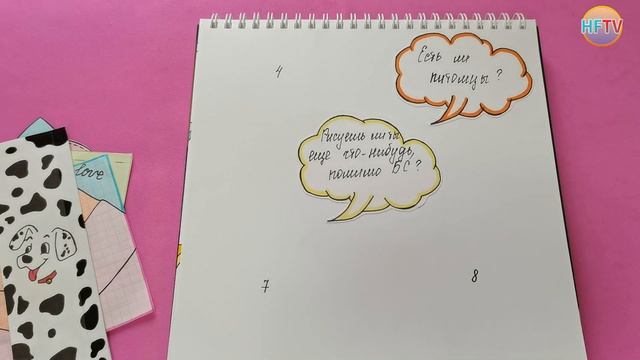 HFTV
Есть ли
питомцы?
4
Рисуешь ли ты
еще что-нибудь,
помимо БС?
Love
7
8